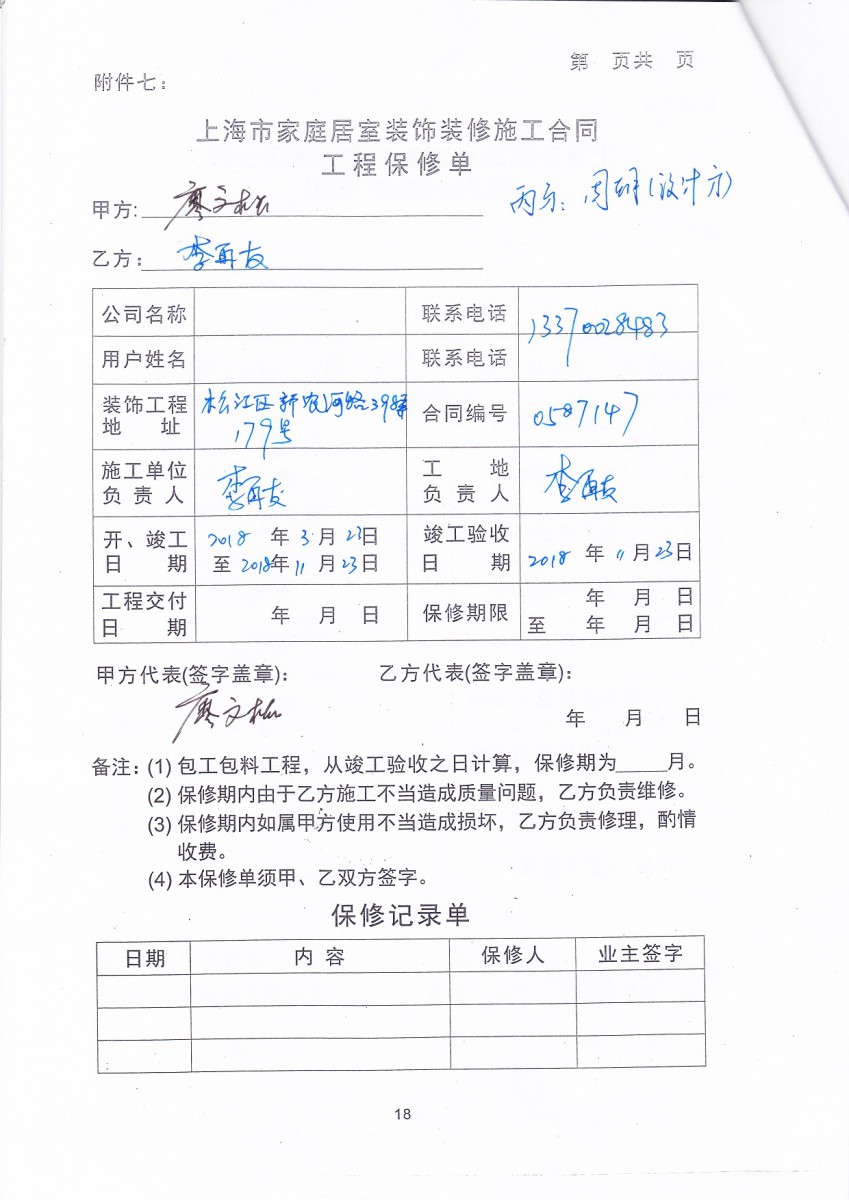 第 页共 页
附件七：
上海市家庭居室装饰装修施工合同
工程保修单
甲方: 廖文松
丙方: (设计方)
乙方: 李再友
公司名称 联系电话 13370028483
用户姓名 联系电话
装饰工程 松江区新农河路398弄 合同编号 0587147
地 址 179号
施工单位 李再友 工 地 李再友
负 责 人 负 责 人
开、竣工 2018 年 3 月 23日 竣工验收 2018 年 11 月 23日
日 期 至 2018年 11 月 23日 日 期
工程交付 年 月 日 保修期限 年 月 日
日 期 至 年 月 日
甲方代表(签字盖章): 乙方代表(签字盖章):
廖文松
年 月 日
备注: (1) 包工包料工程，从竣工验收之日计算，保修期为_____月。
(2) 保修期内由于乙方施工不当造成质量问题，乙方负责维修。
(3) 保修期内如属甲方使用不当造成损坏，乙方负责修理，酌情
收费。
(4) 本保修单须甲、乙双方签字。
保修记录单
日期 内 容 保修人 业主签字
18